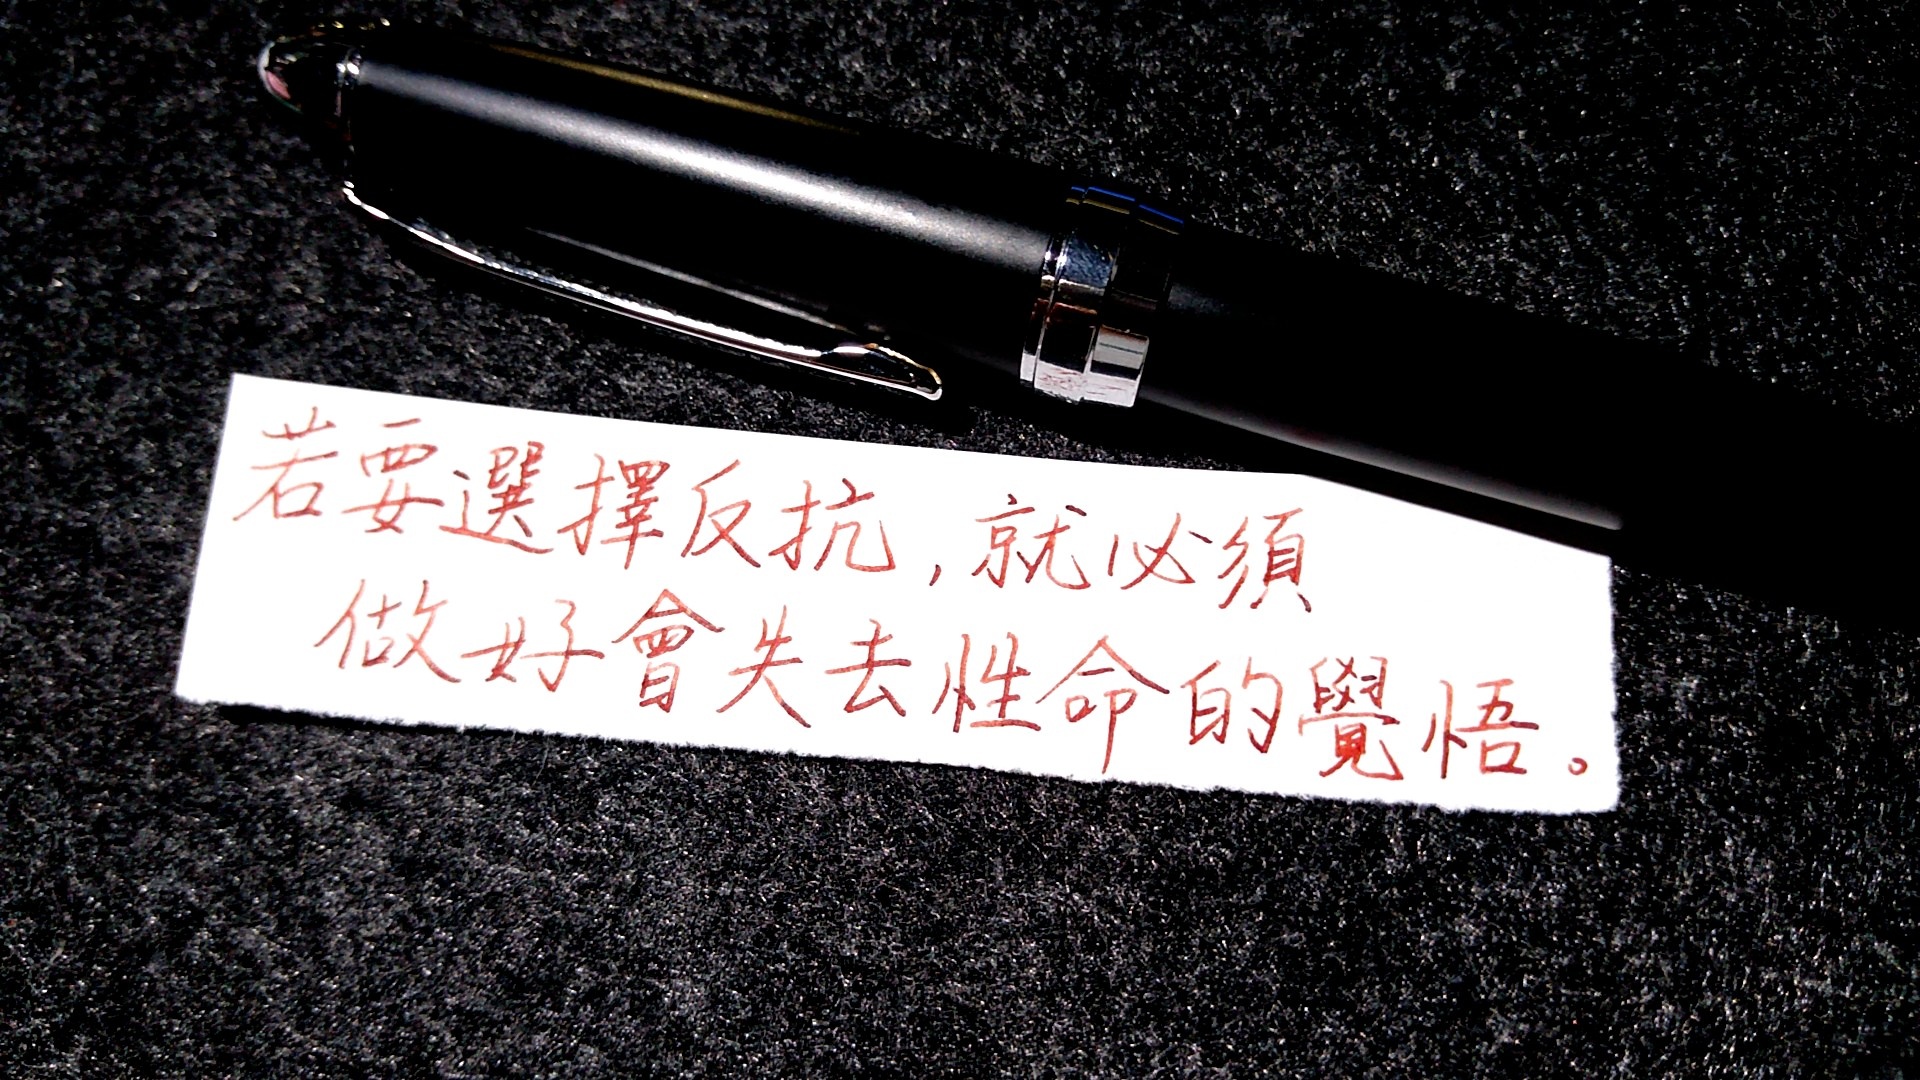 若要選擇反抗,就必須
做好會失去性命的覺悟。